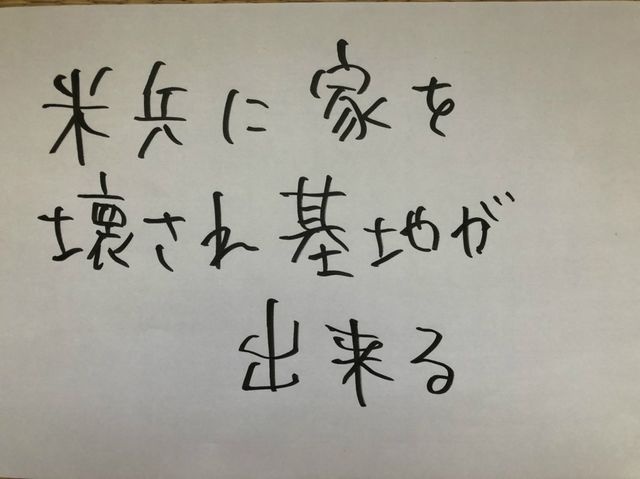 米兵に家を
壊され基地が
出来る